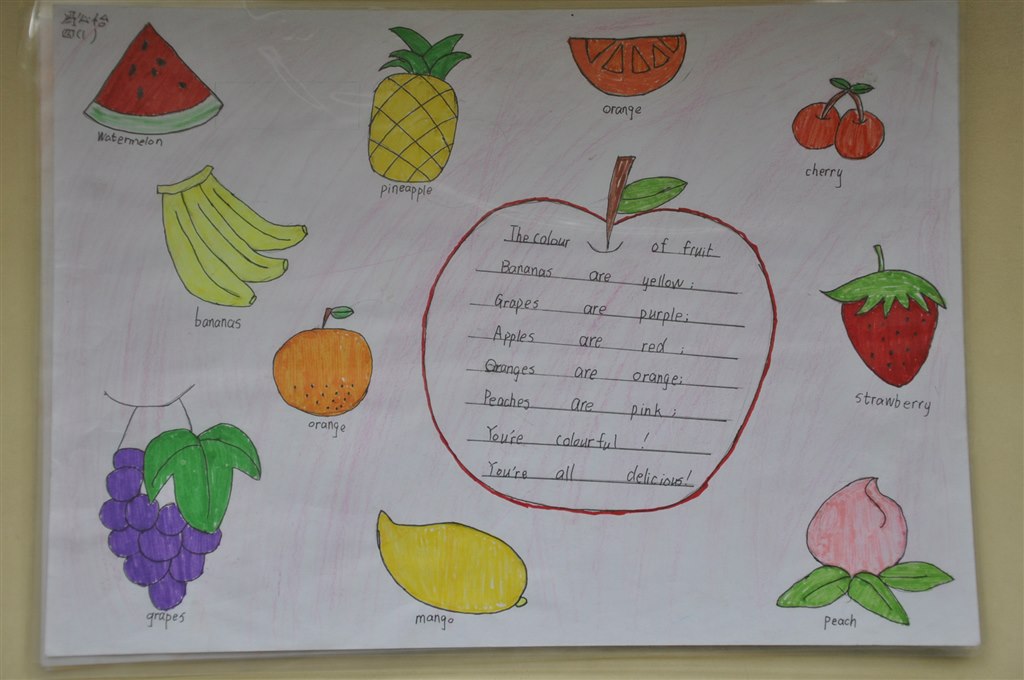 四(1)
Watermelon
pineapple
orange
cherry
bananas
orange
strawberry
grapes
mango
peach
The colour of fruit
Bananas are yellow;
Grapes are purple;
Apples are red;
Oranges are orange;
Peaches are pink;
You're colourful!
You're all delicious!